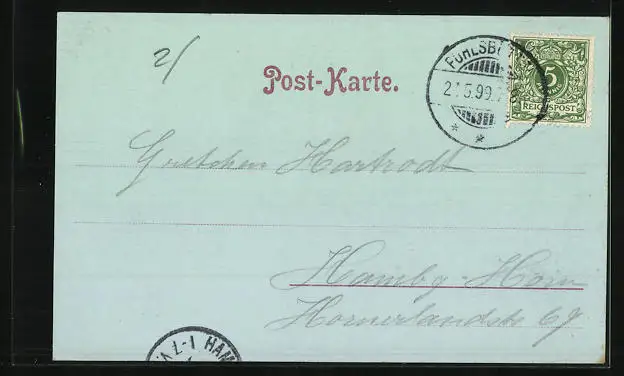 2/
Post-Karte.
FUHLSBÜ
21.5.99.7
5
REICHSPOST
Gretchen Hartrodt
Hambg-Horn
Hornerlandstr 69
1-7 V. HAM